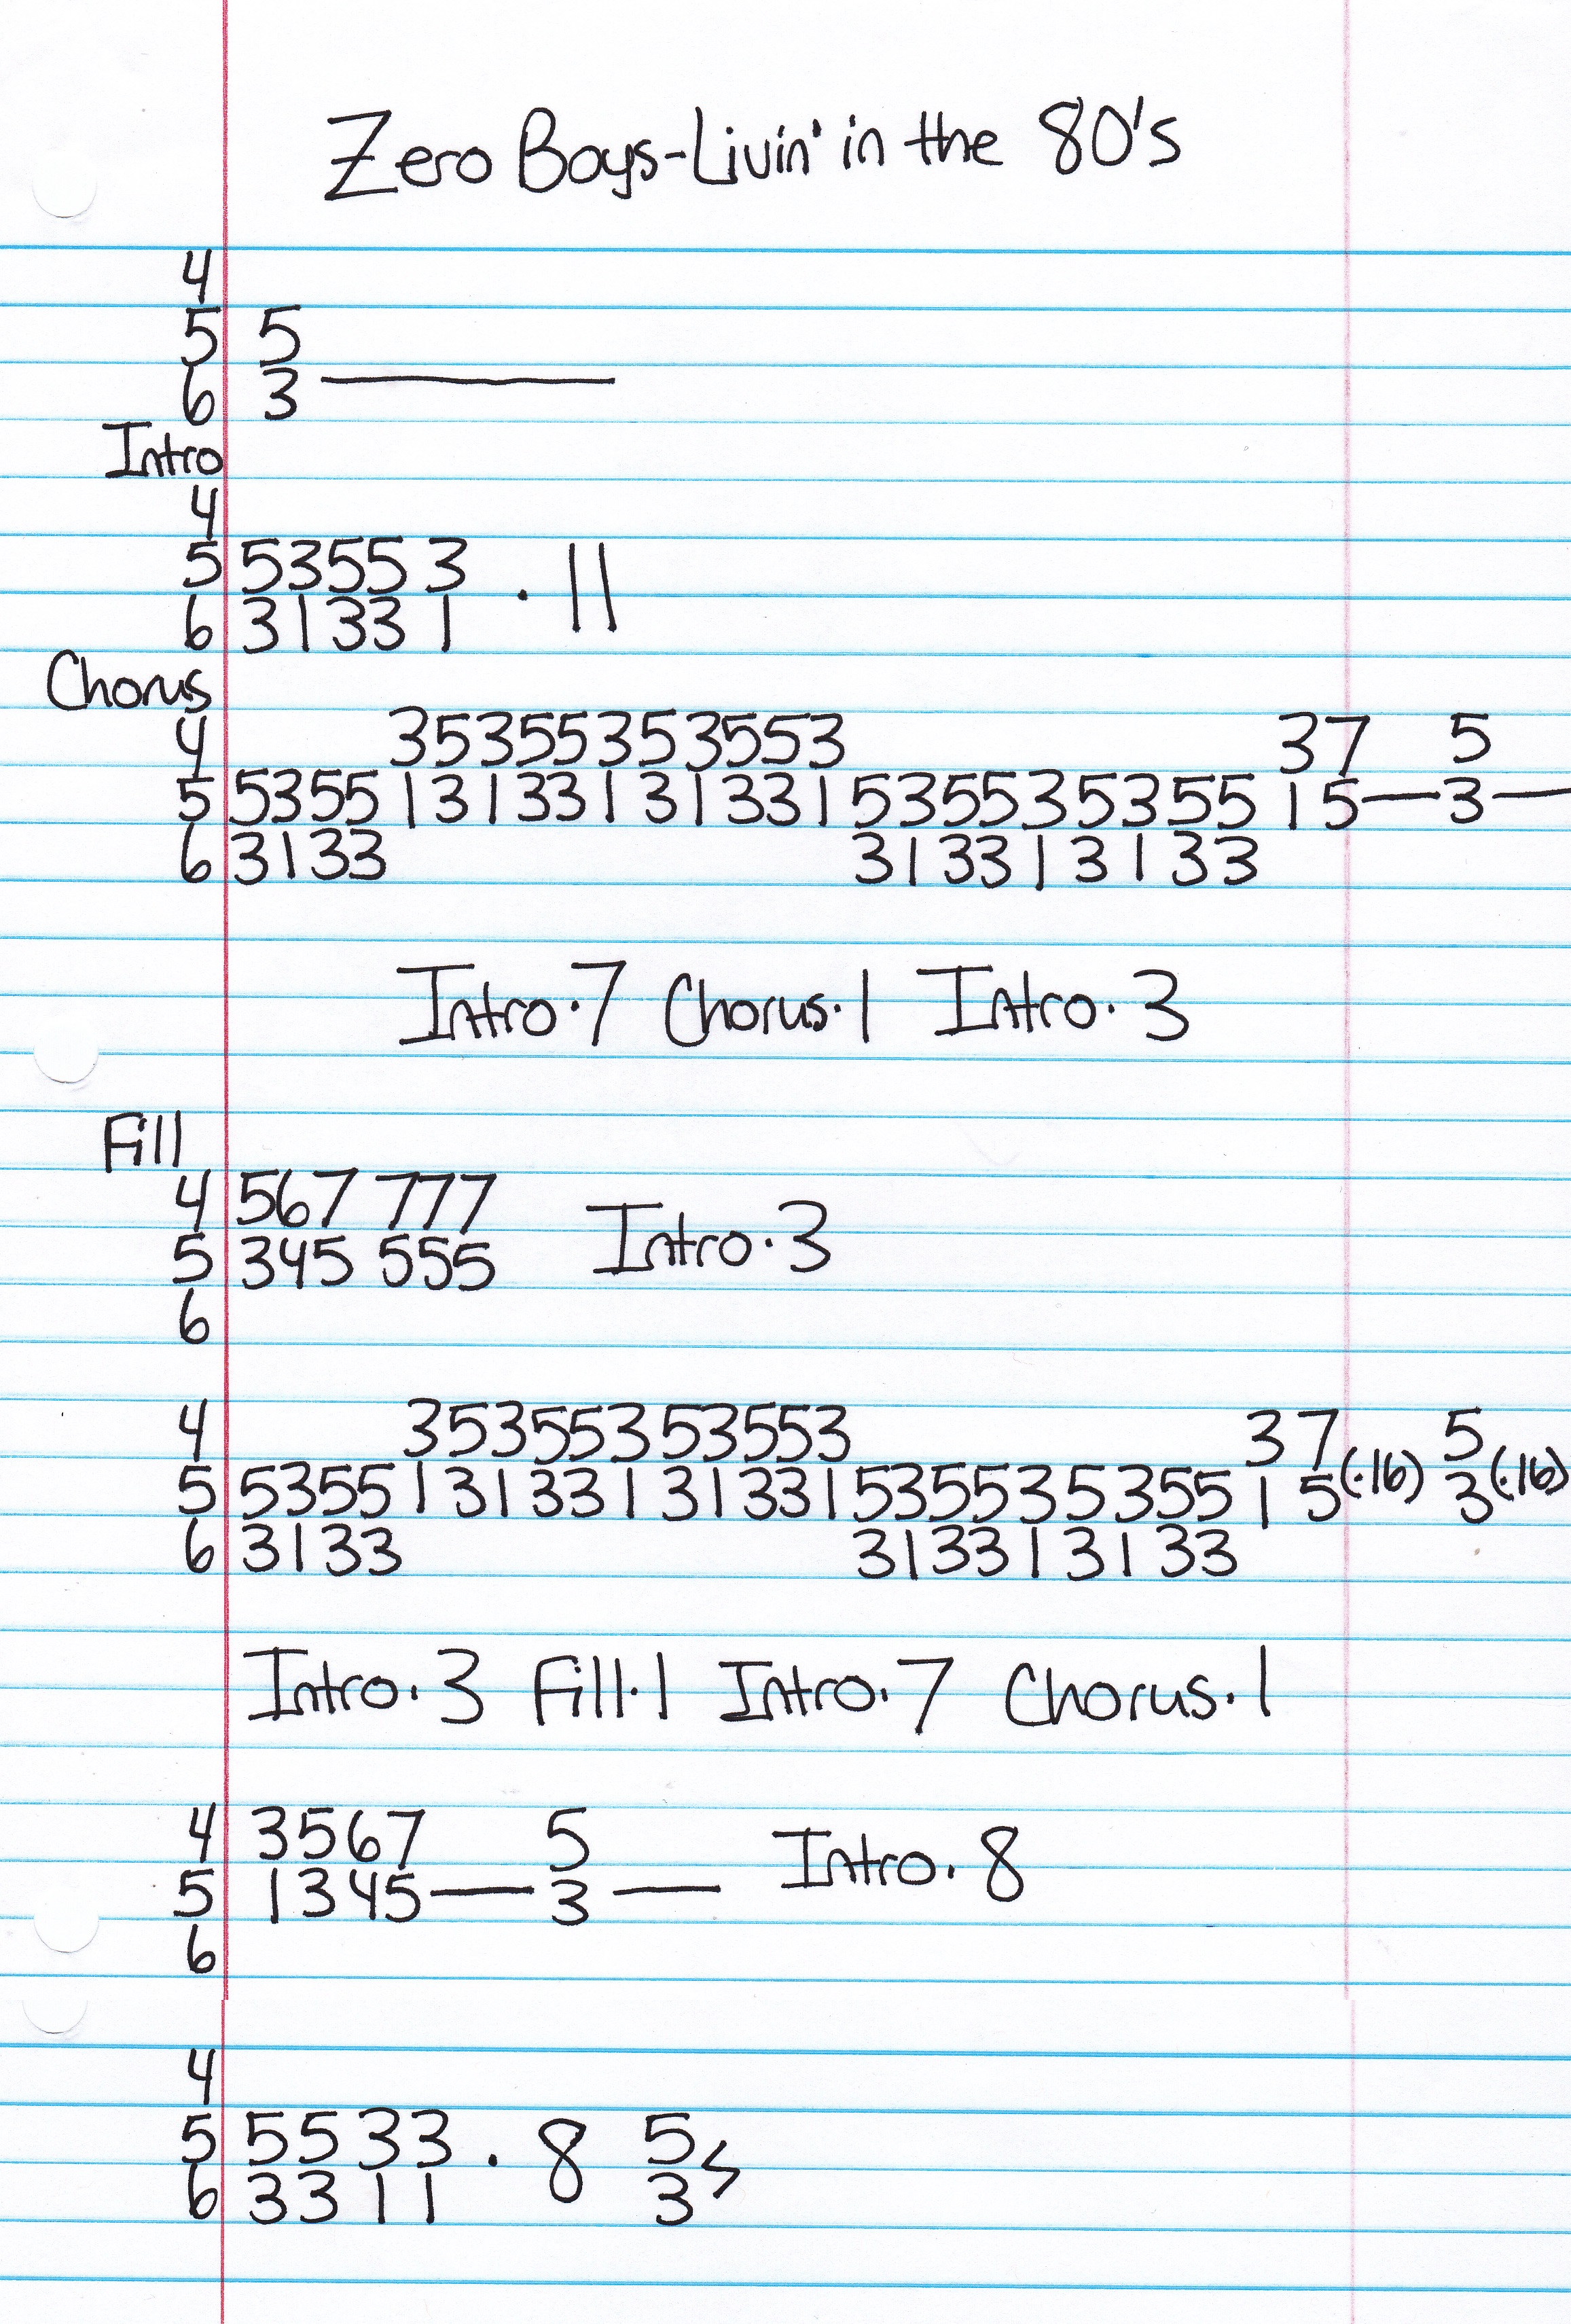 Zero Boys-Livin' in the 80's
4
5 5
6 3 —
Intro
4
5 53553 . 11
6 31331
Chorus
4 35355353553 37 5
5 5355 13133131331 535535355 15— 3—
6 3133 313313133
Intro.7 Chorus.1 Intro.3
Fill
4 567 777
5 345 555 Intro.3
6
4 35355353553 37 5
5 5355 13133131331 535535355 15(.16) 3(.16)
6 3133 313313133
Intro.3 Fill.1 Intro.7 Chorus.1
4 3567 5
5 1345— 3 — Intro.8
6
4
5 5533 . 8 5
6 3311 3